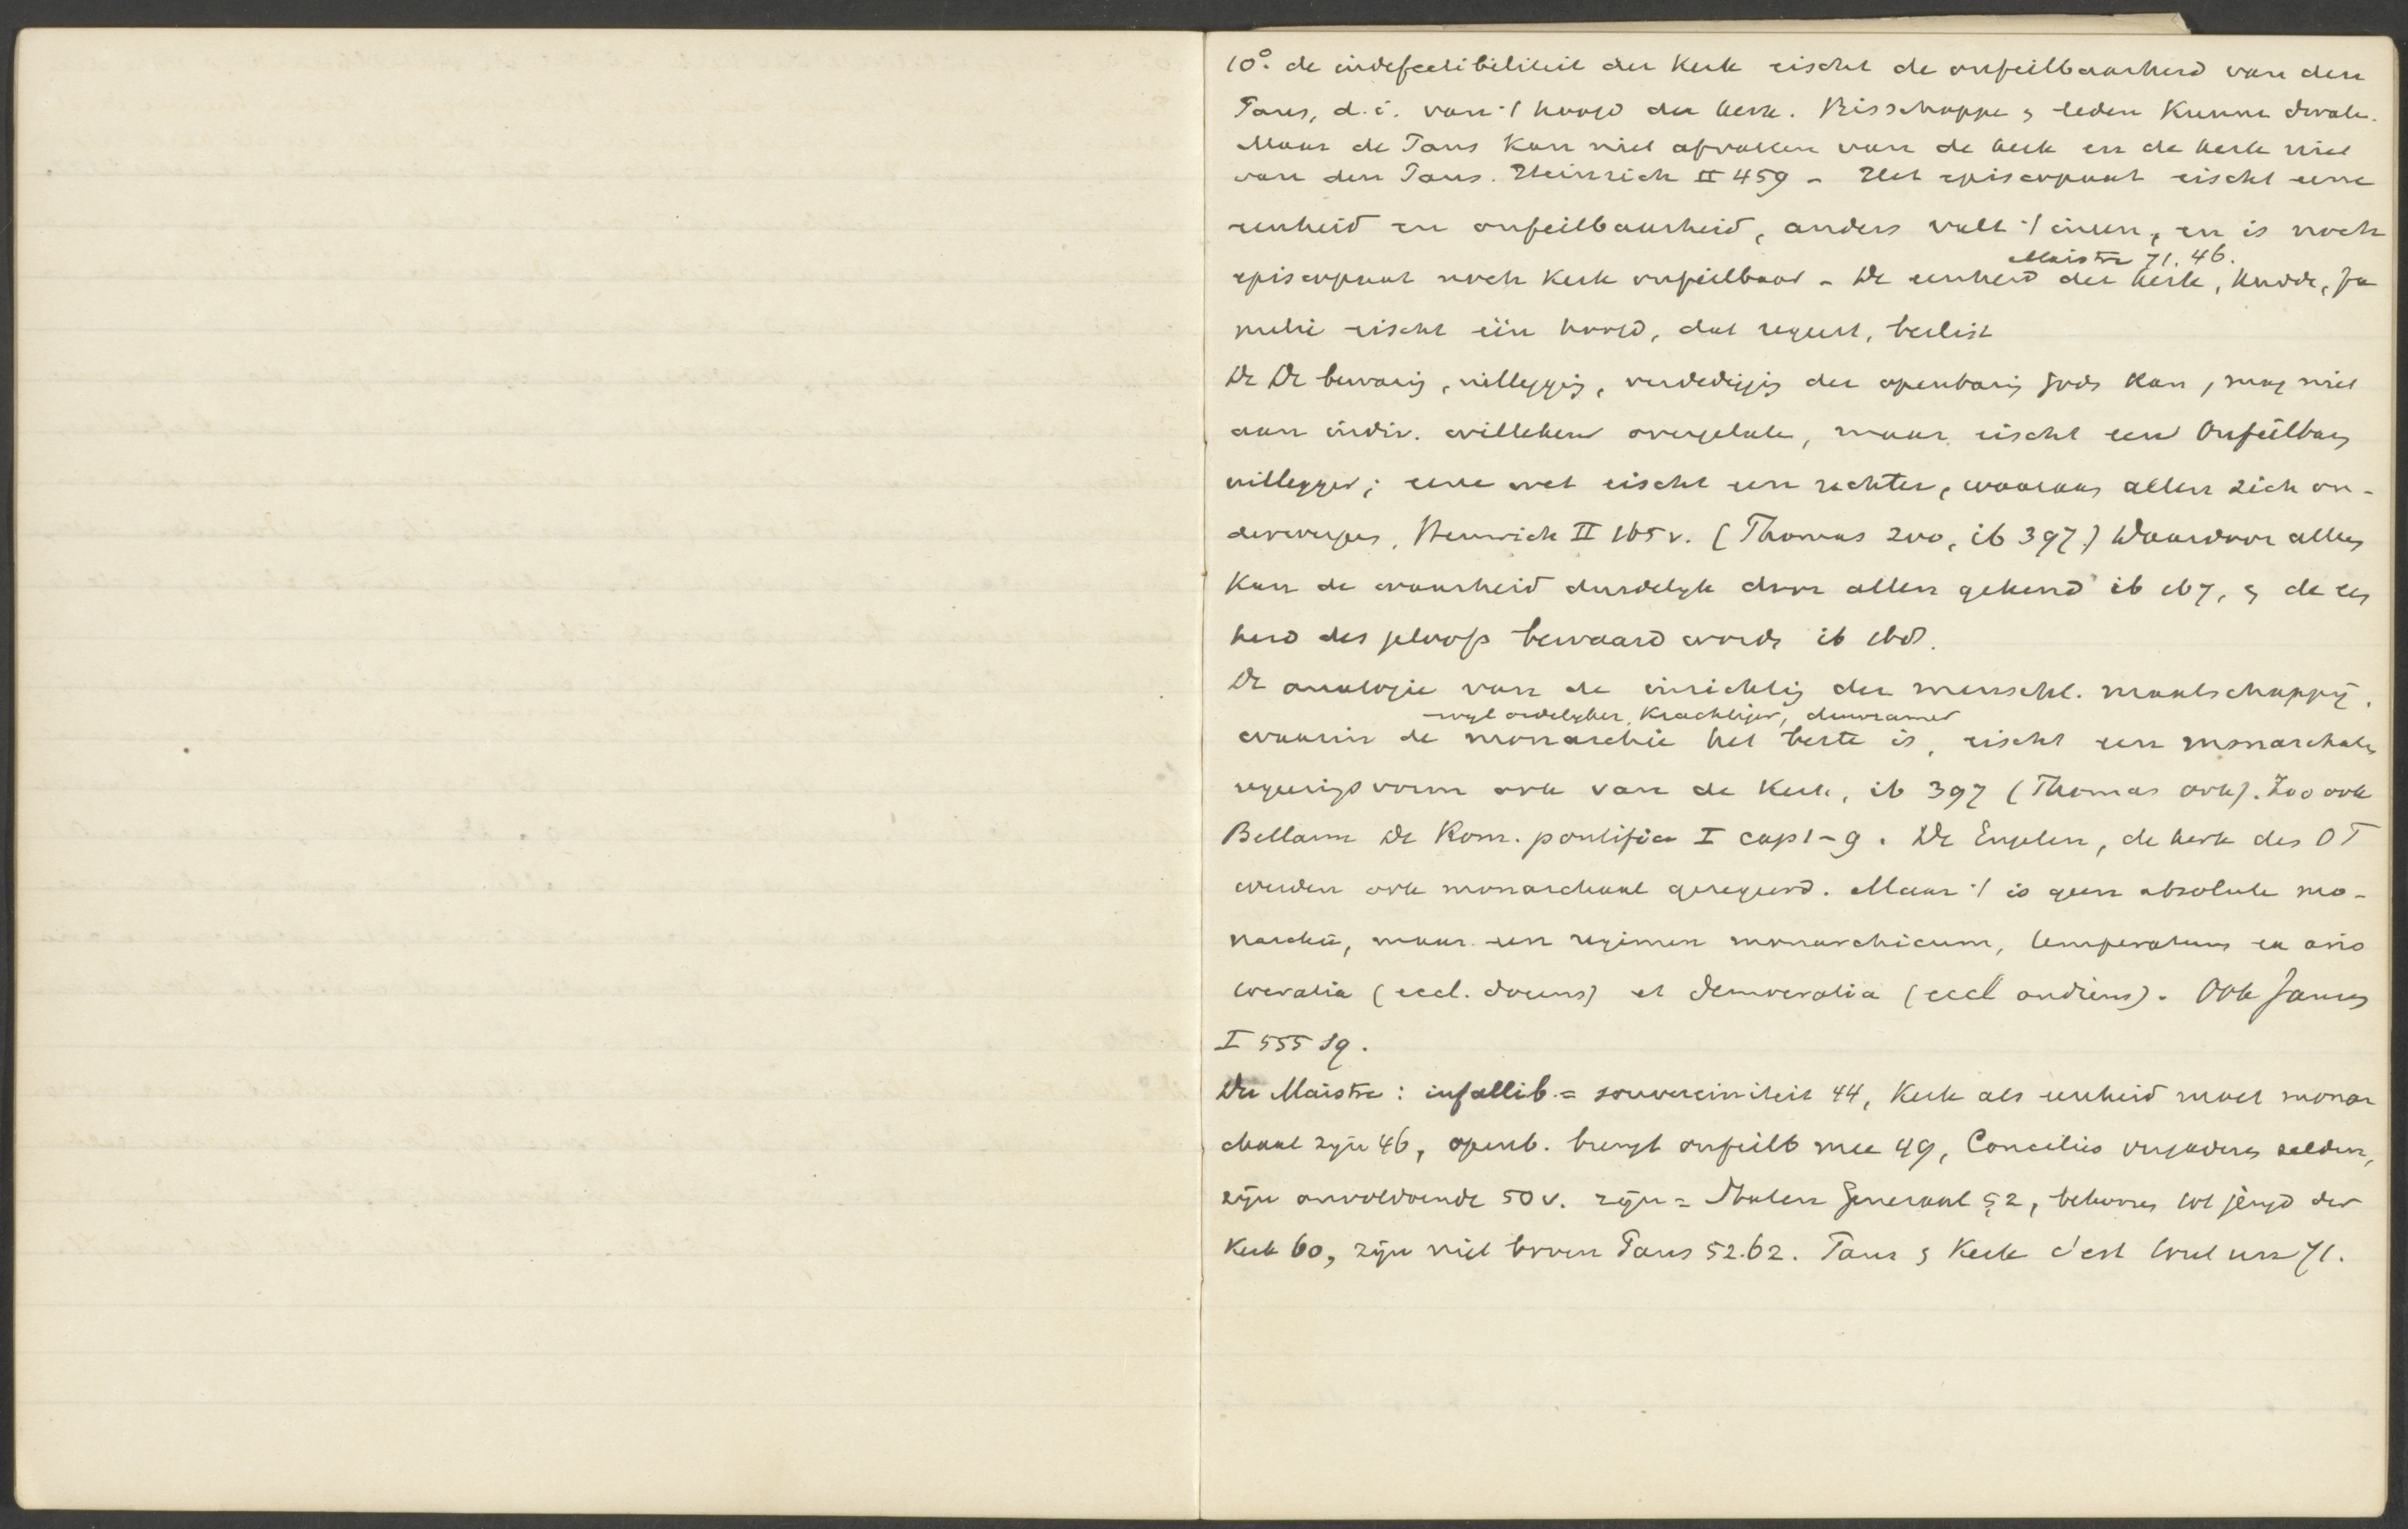 10°. de indefectibiliteit der Kerk eischt de onfeilbaarheid van den
Paus, d.i. van 't hoofd der kerk. Bisschoppe & leden kunne dwale.
Maar de Paus kan niet afvallen van de kerk en de kerk niet
van den Paus. Heinrich II 459 - Het episcopaat eischt eene
eenheid en onfeilbaarheid, anders valt 't ineen, en is noch
Maistre 71. 46.
episcopaat noch Kerk onfeilbaar - De eenheid der kerk, kudde, fa
milie eischt één hoofd, dat regeert, beslist
De De bewarig, uitleggig, verdedigig der openbarig Gods kan, mag niet
aan indiv. willekeur overgelate, maar eischt een Onfeilbare
uitlegger; eene wet eischt een rechter, waaraan allen zich on-
derwerpen, Heinrich II 165 v. (Thomas 200, ib 397) Waardoor alleen
kan de waarheid duidelyk door allen gekend ib 167, & de een
heid des geloofs bewaard worde ib 168.
De analogie van de inrichtig der menschl. maatschappij,
wyl ordelyker, krachtiger, duurzamer
waarin de monarchie het beste is, eischt een monarchale
regeerigsvorm ook van de Kerk, ib 397 (Thomas ook). Zoo ook
Bellarm De Rom. pontifice I cap 1-9. De Engelen, de kerk des OT
werden ook monarchaal geregeerd. Maar 't is geen absolute mo-
narchie, maar een regimen monarchicum, temperatum ex aris
tocratia (eccl. docens) et democratia (eccl audiens). Ook Jansen
I 555 sq.
De Maistre: infallib = souvereiniteit 44, Kerk als eenheid moet monar
chaal zijn 46, openb. brengt onfeilb mee 49, Concilies vergaderen zelden,
zijn onvoldoende 50 v. zijn = Staten Generaal 52, behooren tot jeugd der
Kerk 60, zijn niet boven Paus 52.62. Paus & Kerk c'est tout un 71.